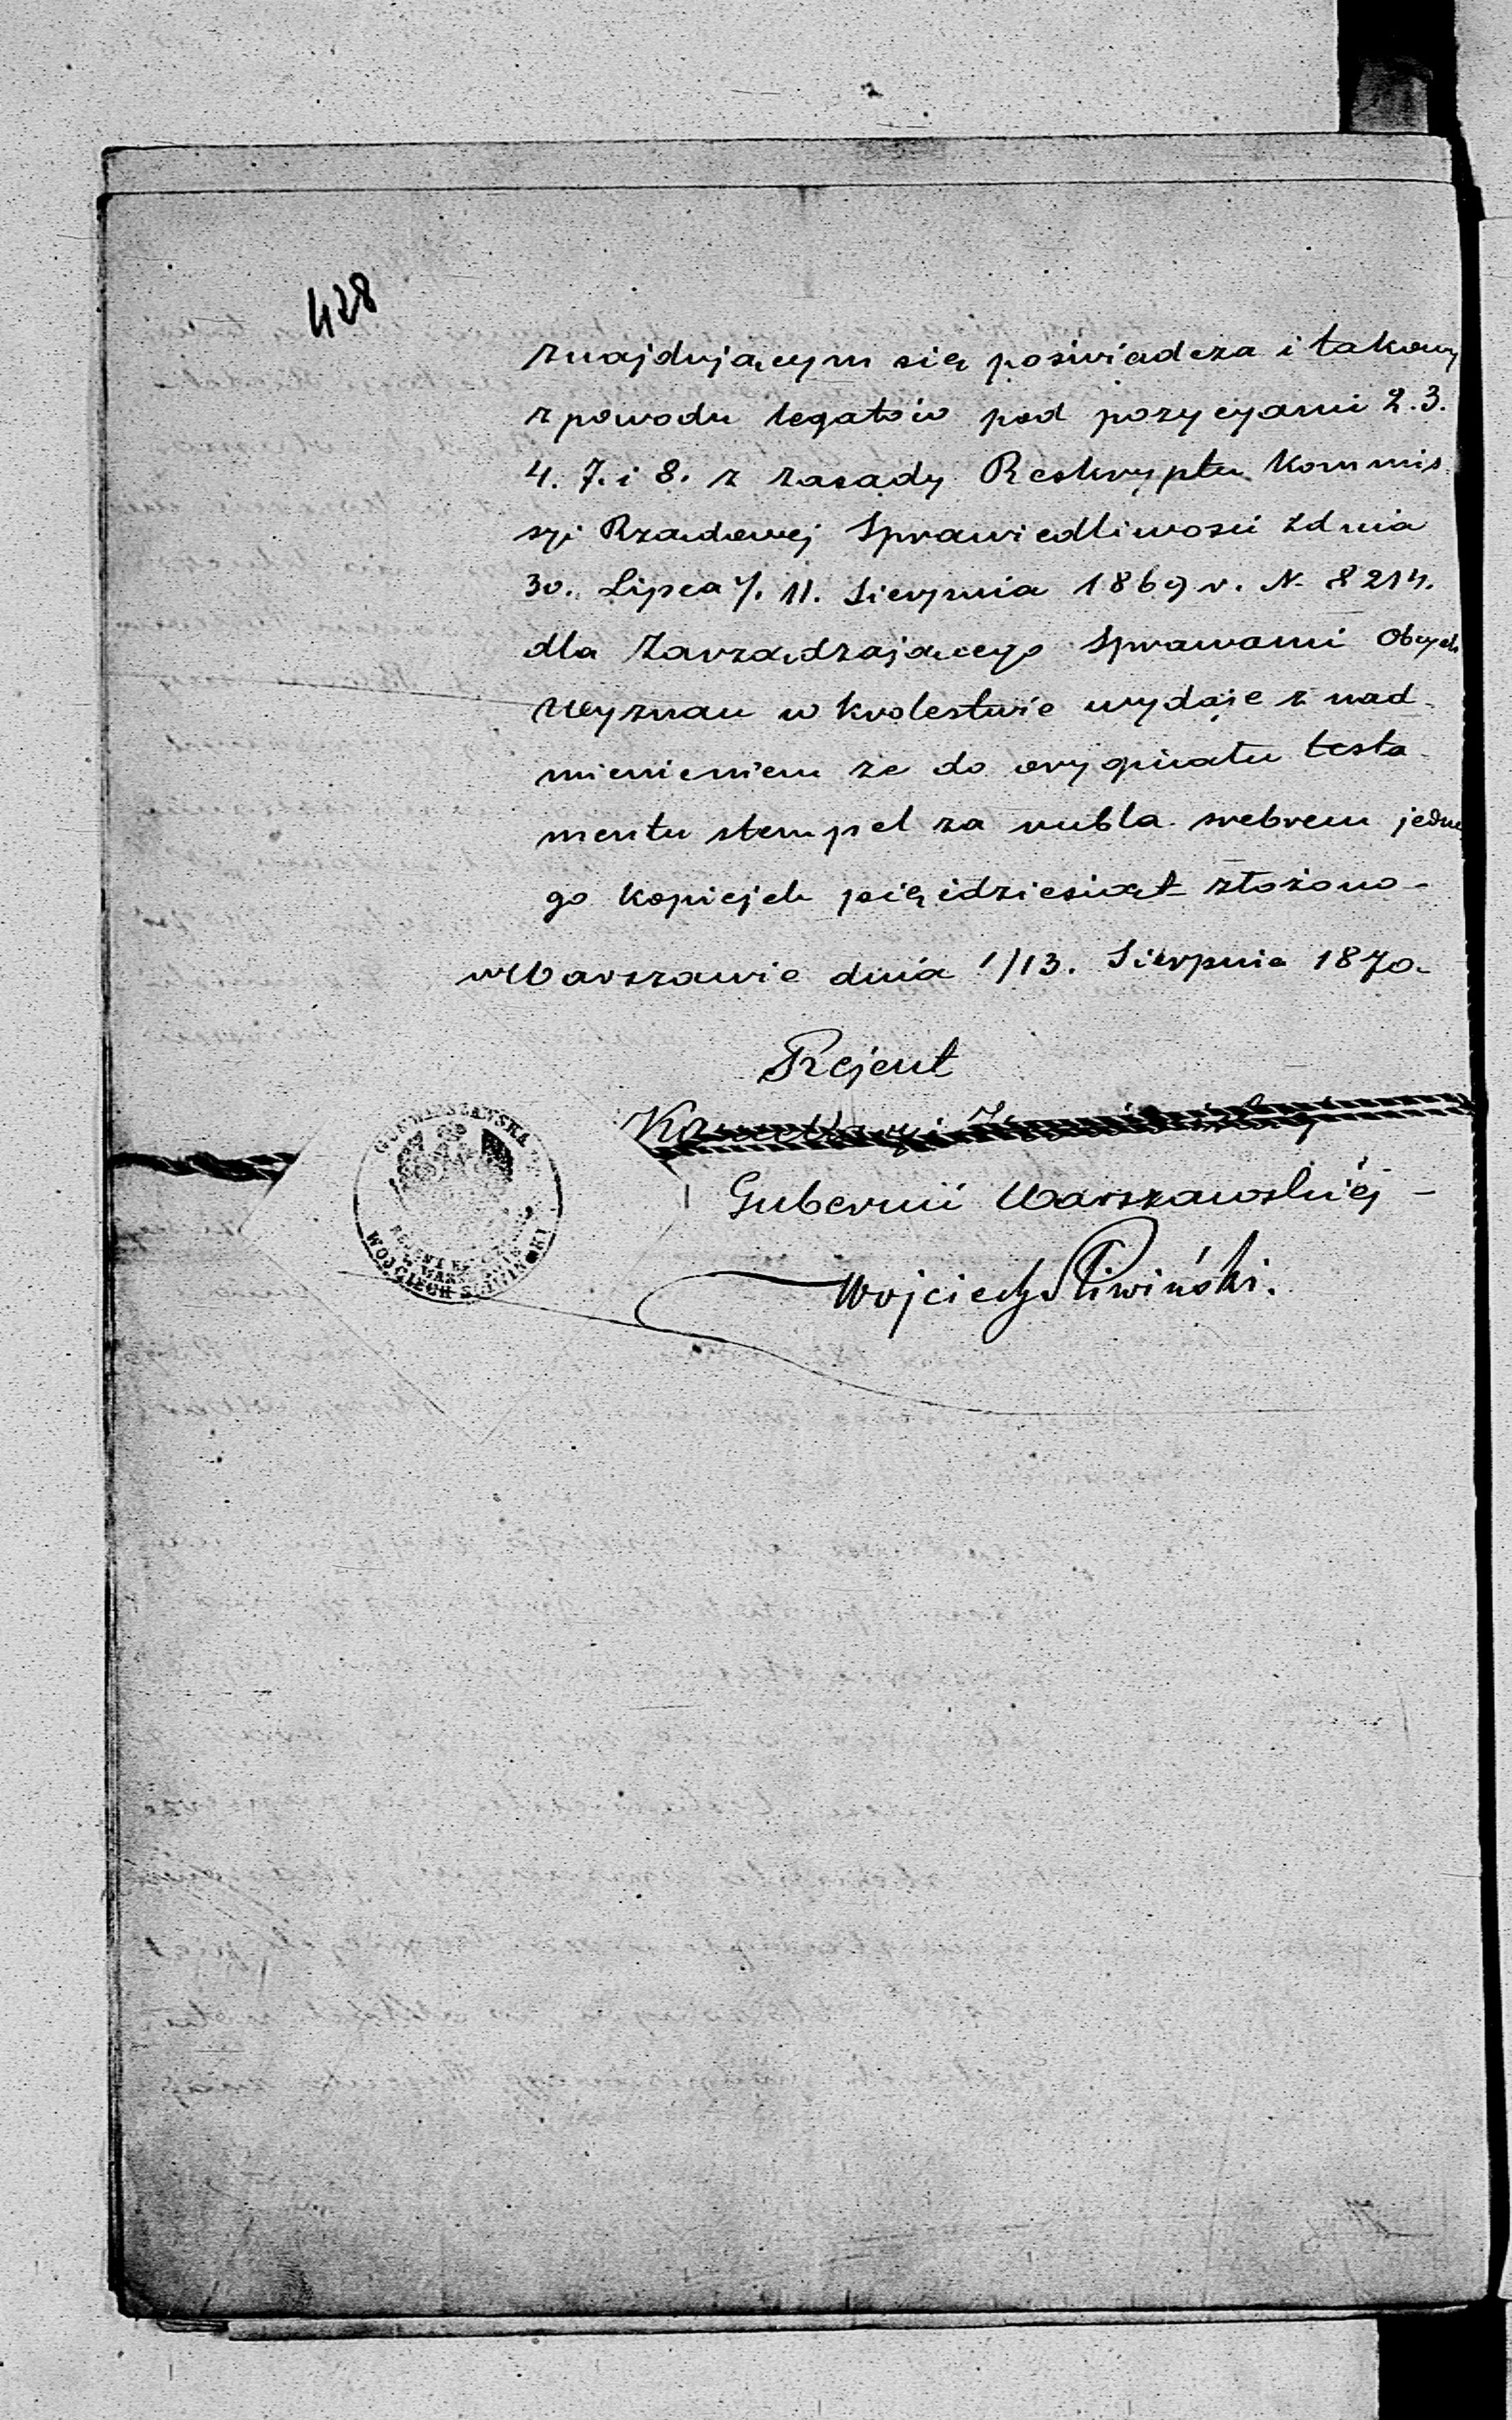 428
znajdującym się poświadcza i takowy
z powodu legatów pod pozycyami 2.3.
4. 7. i 8. z zasady Reskryptu Kommis
syi Rządowej Sprawiedliwości z dnia
30. Lipca /. 11. Sierpnia 1869 r. N. 8214.
dla Zarządzającego Sprawami Obcych
Wyznań w Królestwie wydaje z nad-
mienieniem że do oryginału testa-
mentu stempel za rubla srebrem jedne
go kopiejek pięćdziesiąt złożono-
w Warszawie dnia 1/13. Sierpnia 1870-
Rejent
Gubernii Warszawskiéj -
Wojciech Śliwiński.
WOJCIECH ŚLIWIŃSKI